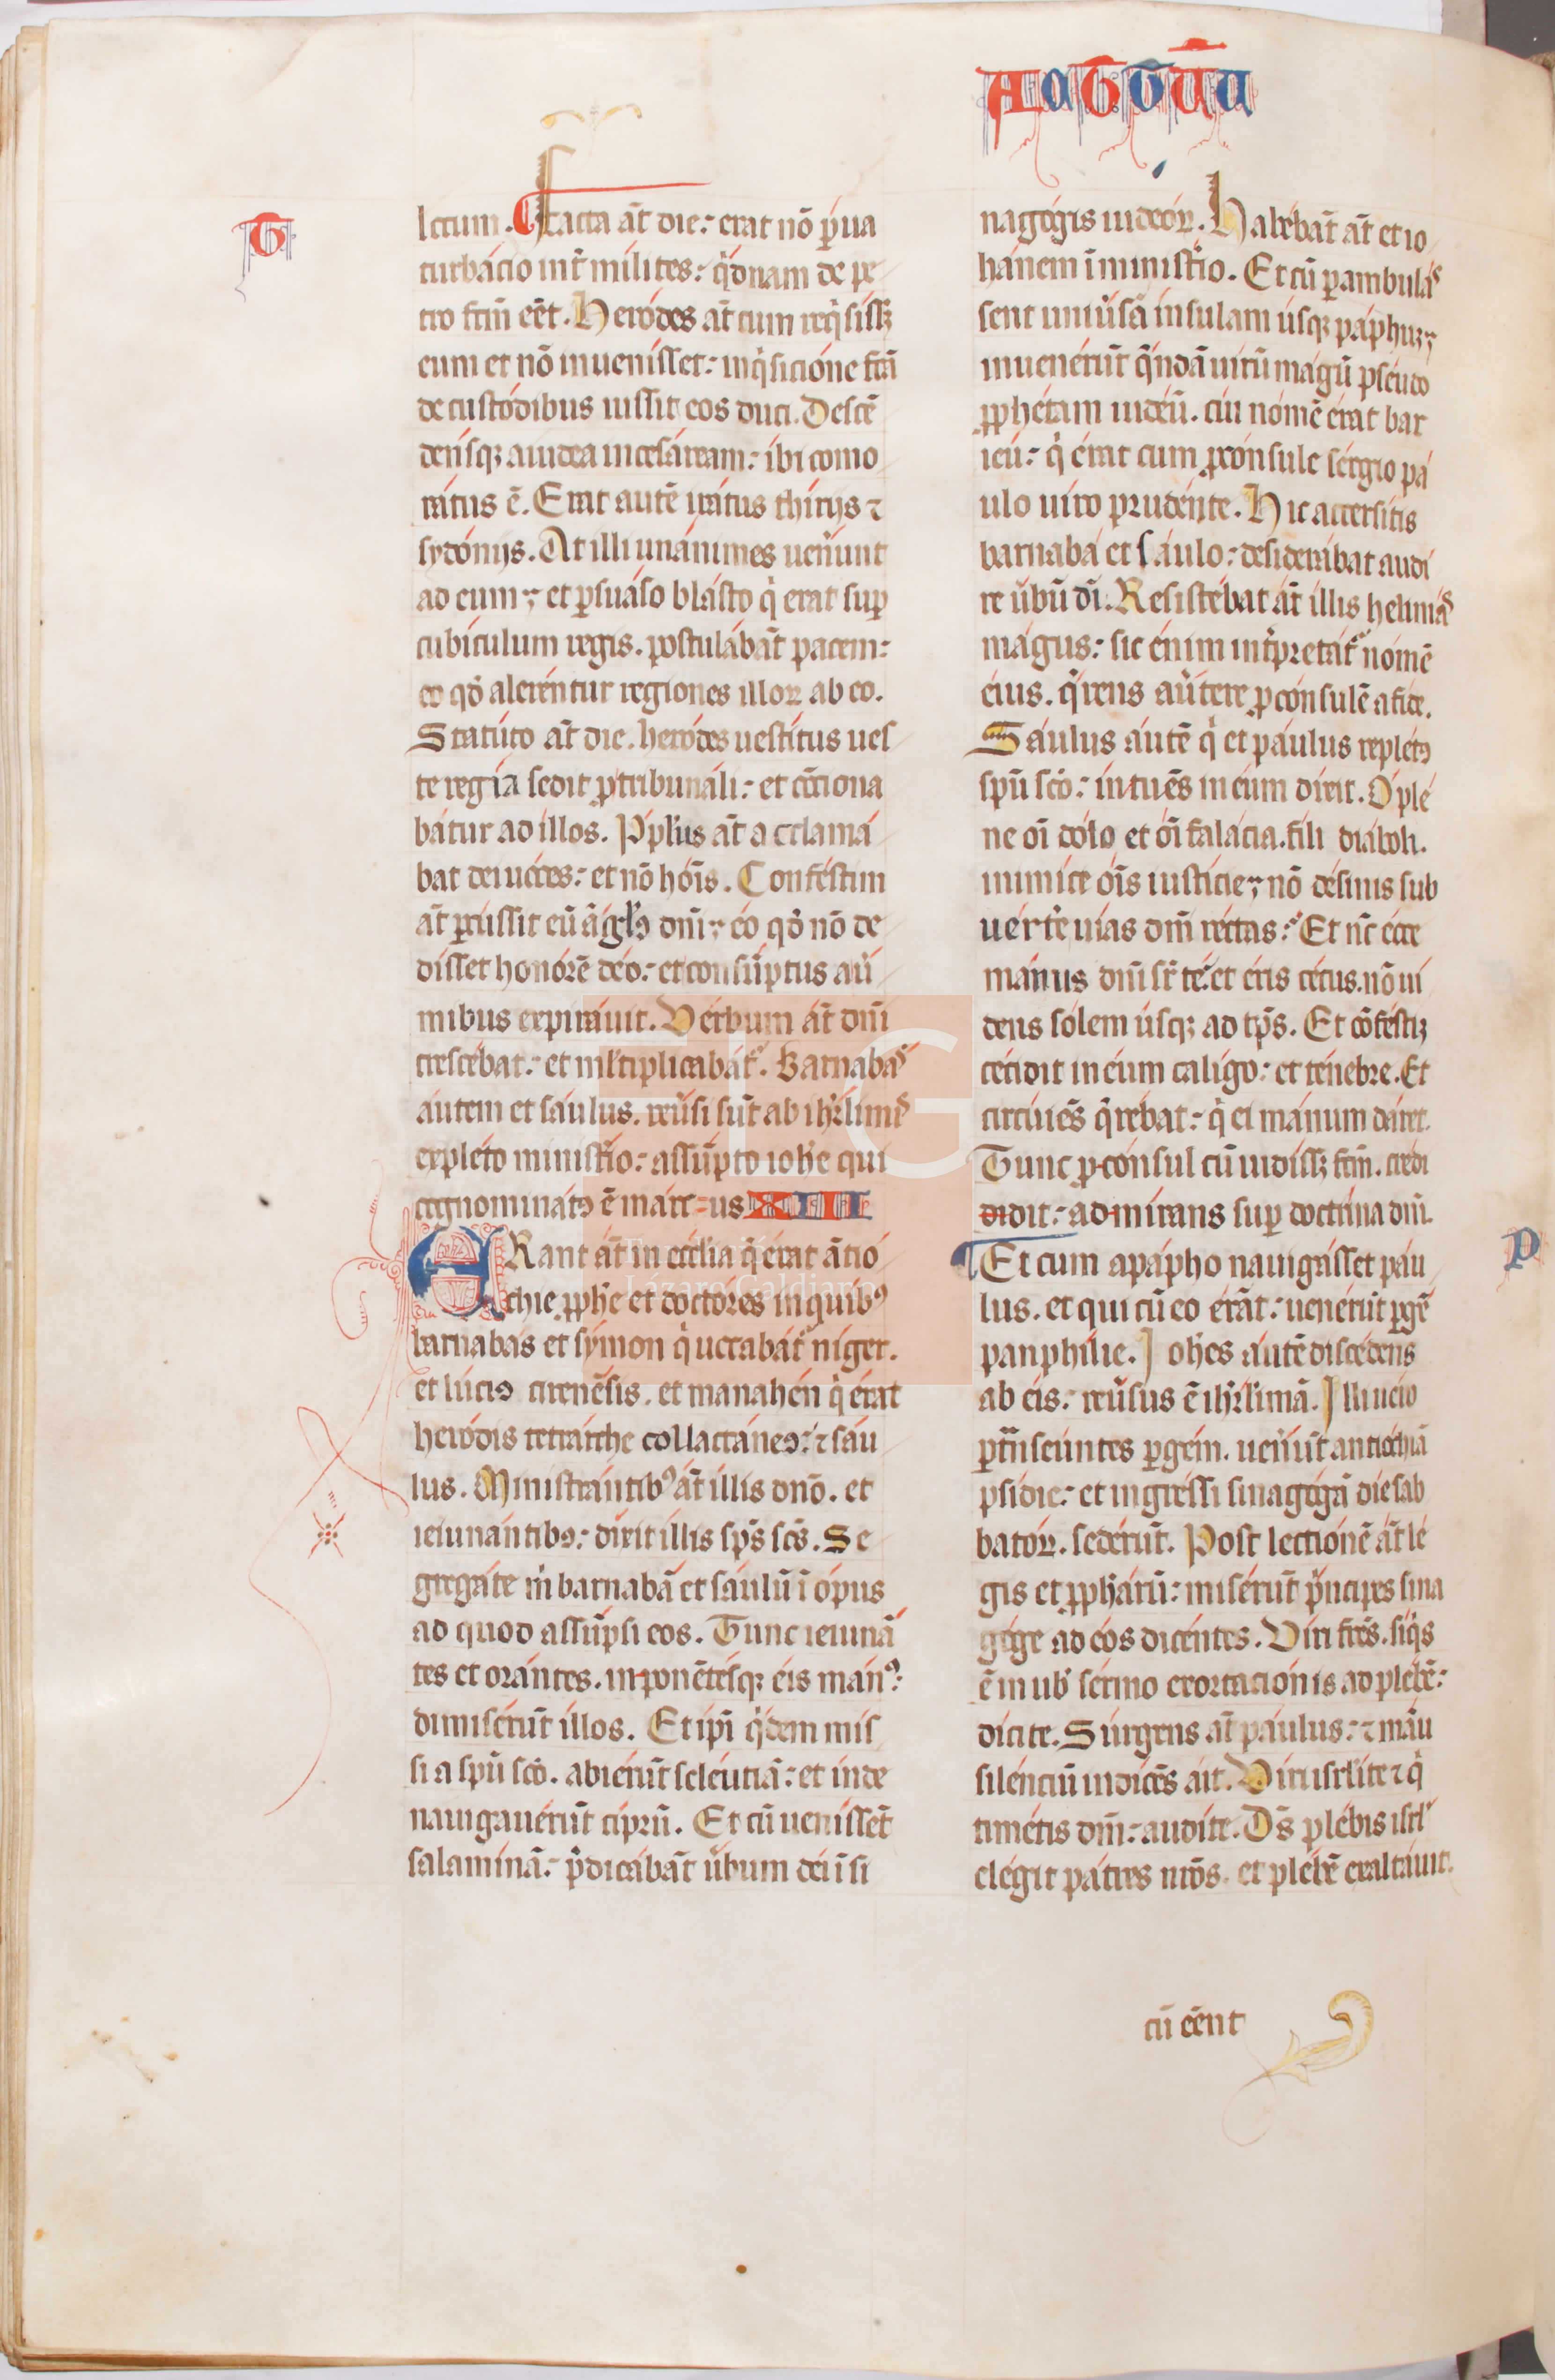 AaGGUU
G
lctum. Facta at̄ die: erat nō p̄ua
turbácio int̄ mílites: q̇dnam de pe
tro fcm̄ eēt. Heródes at̄ cum req̇sissꝫ
eum et nō inuenísset: inq̇sicióne fcā
de custódibus iussit eos duci. Descē
densqꝫ a iudea in cesáream: ibi como
rátus ē. Erat autē irátus thirijs ⁊
sydónijs. At illi unánimes uen̄unt
ad eum: et ꝑsuáso blásto q̇ erat sup̄
cubículum regis. postulábāt pacem:
eo qd̄ aleréntur regiones illoꝝ ab eo.
Statúto at̄ die. heródes uestítus ues
te regia sedit ꝓ tribunáli: et cōciona
bátur ad illos. Pplu̇s at̄ acclamá
bat dei uóces: et nō hóīs. Conféstim
at̄ ꝑcussit eū āgl̄s dn̄i: eo qd̄ nō de
disset honórē déo: et consūptus a u̇
mibus expiráuit. Verbum at̄ dn̄i
crescébat: et ml̄tiplicabát᷑. Barnabas
áutem et sáulus. reūsi sūt ab ihrl̄imis
expléto ministĩo: assūpto ioh̄e qui
cognominatꝰ ē márc=us XIII
ERant at̄ in ecclia q̄ érat ānió
chie ꝓph̄e et doctóres in quibꝰ
barnabas et sýmon q̇ uocabát᷑ níger.
et lúciꝰ cirenēsis. et manahén q̇ érat
heródis tetrárche collactáneꝰ: ⁊ sáu
lus. Ministrántibꝰ at̄ illis dnō. et
ieiunántibꝰ: dixit illis sp̄s scs̄. Se
gregáte m̊ barnabā et sáulū ī ópus
ad quod assūpsi eos. Tunc ieiunā
tes et orántes. inponētésqꝫ éis manꝰ:
dimisérūt illos. Et ip̄i q̇dem mis
si a spū scō. abiérūt seléuciā: et índe
nauigauérūt ciprū. Et cū uenissēt
salamínā: p̄dicábāt ūbum déi ī si
nagógis iudeóꝝ. Habébāt at̄ et io
hánem ī ministĩo. Et cū ꝑambulas
sent uniūsā ínsulam úsqꝫ páphuꝫ:
inuenérūt q̄ndā uirū mágū pséudo
ꝓphétam iudéū. cui nómē érat bar
iéu: q̇ érat cum ꝓcónsule sérgio pá
ulo uíro prudénte. Hic accersítis
barnabá et sáulo: desiderábat audí
re ūbū dī. Resistébat at̄ illis helimas
mágus: sic énim int̄pretát᷑ nómē
éius. q̄rens aūtere ꝓcónsulē a fide.
Sáulus áutē q̇ et páulus replétꝰ
spū scō: íntuēs in eum dixit. O plé
ne oī dólo et oī falácia. fili diáboli.
inimíce oīs iustície: nō désinis sub
uért̄e uías dn̄i réctas: Et nc̄ écce
mánus dn̄i sr̄ te: et éris cécus. nō uí
dens sólem úsqꝫ ad tp̄s. Et cōféstiꝫ
cécidit in éum calígo: et ténebre. Et
circúiēs q̄rébat: q̇ ei mánum dáret.
Tunc ꝓcónsul cū uidíssꝫ fcm̄. credi
didit: admírans sup̄ doctrína dn̄i.
Et cum a pápho nauigásset páu
P
lus. et qui cū eo érāt: uenérūt ꝑgē
panphílie. Johes áutē discédens
ab éis: reūsus ē ihrl̄imā. Illi uéro
ꝑtn̄seúntes ꝑgem. uen̄ūt antiochiā
psidie: et ingréssi sinagógā díe sab
batóꝝ. sedérūt. Post lectiónē at̄ lé
gis et ꝓph̄árū: misérūt p̄ncipes sina
góge ad éos dicéntes. Viri frēs. siq̇s
ē in uob̄ sérmo exortaciónis ad plébē:
dícite. Súrgens at̄ páulus: ⁊ māu
siléncium indícēs áit. Viri isrl̄íte ⁊ q̇
timétis dm̄: audíte. Ds̄ plébis isrl̄
elégit pátres nr̄os. et plébē exaltáuit.
cū eēnt